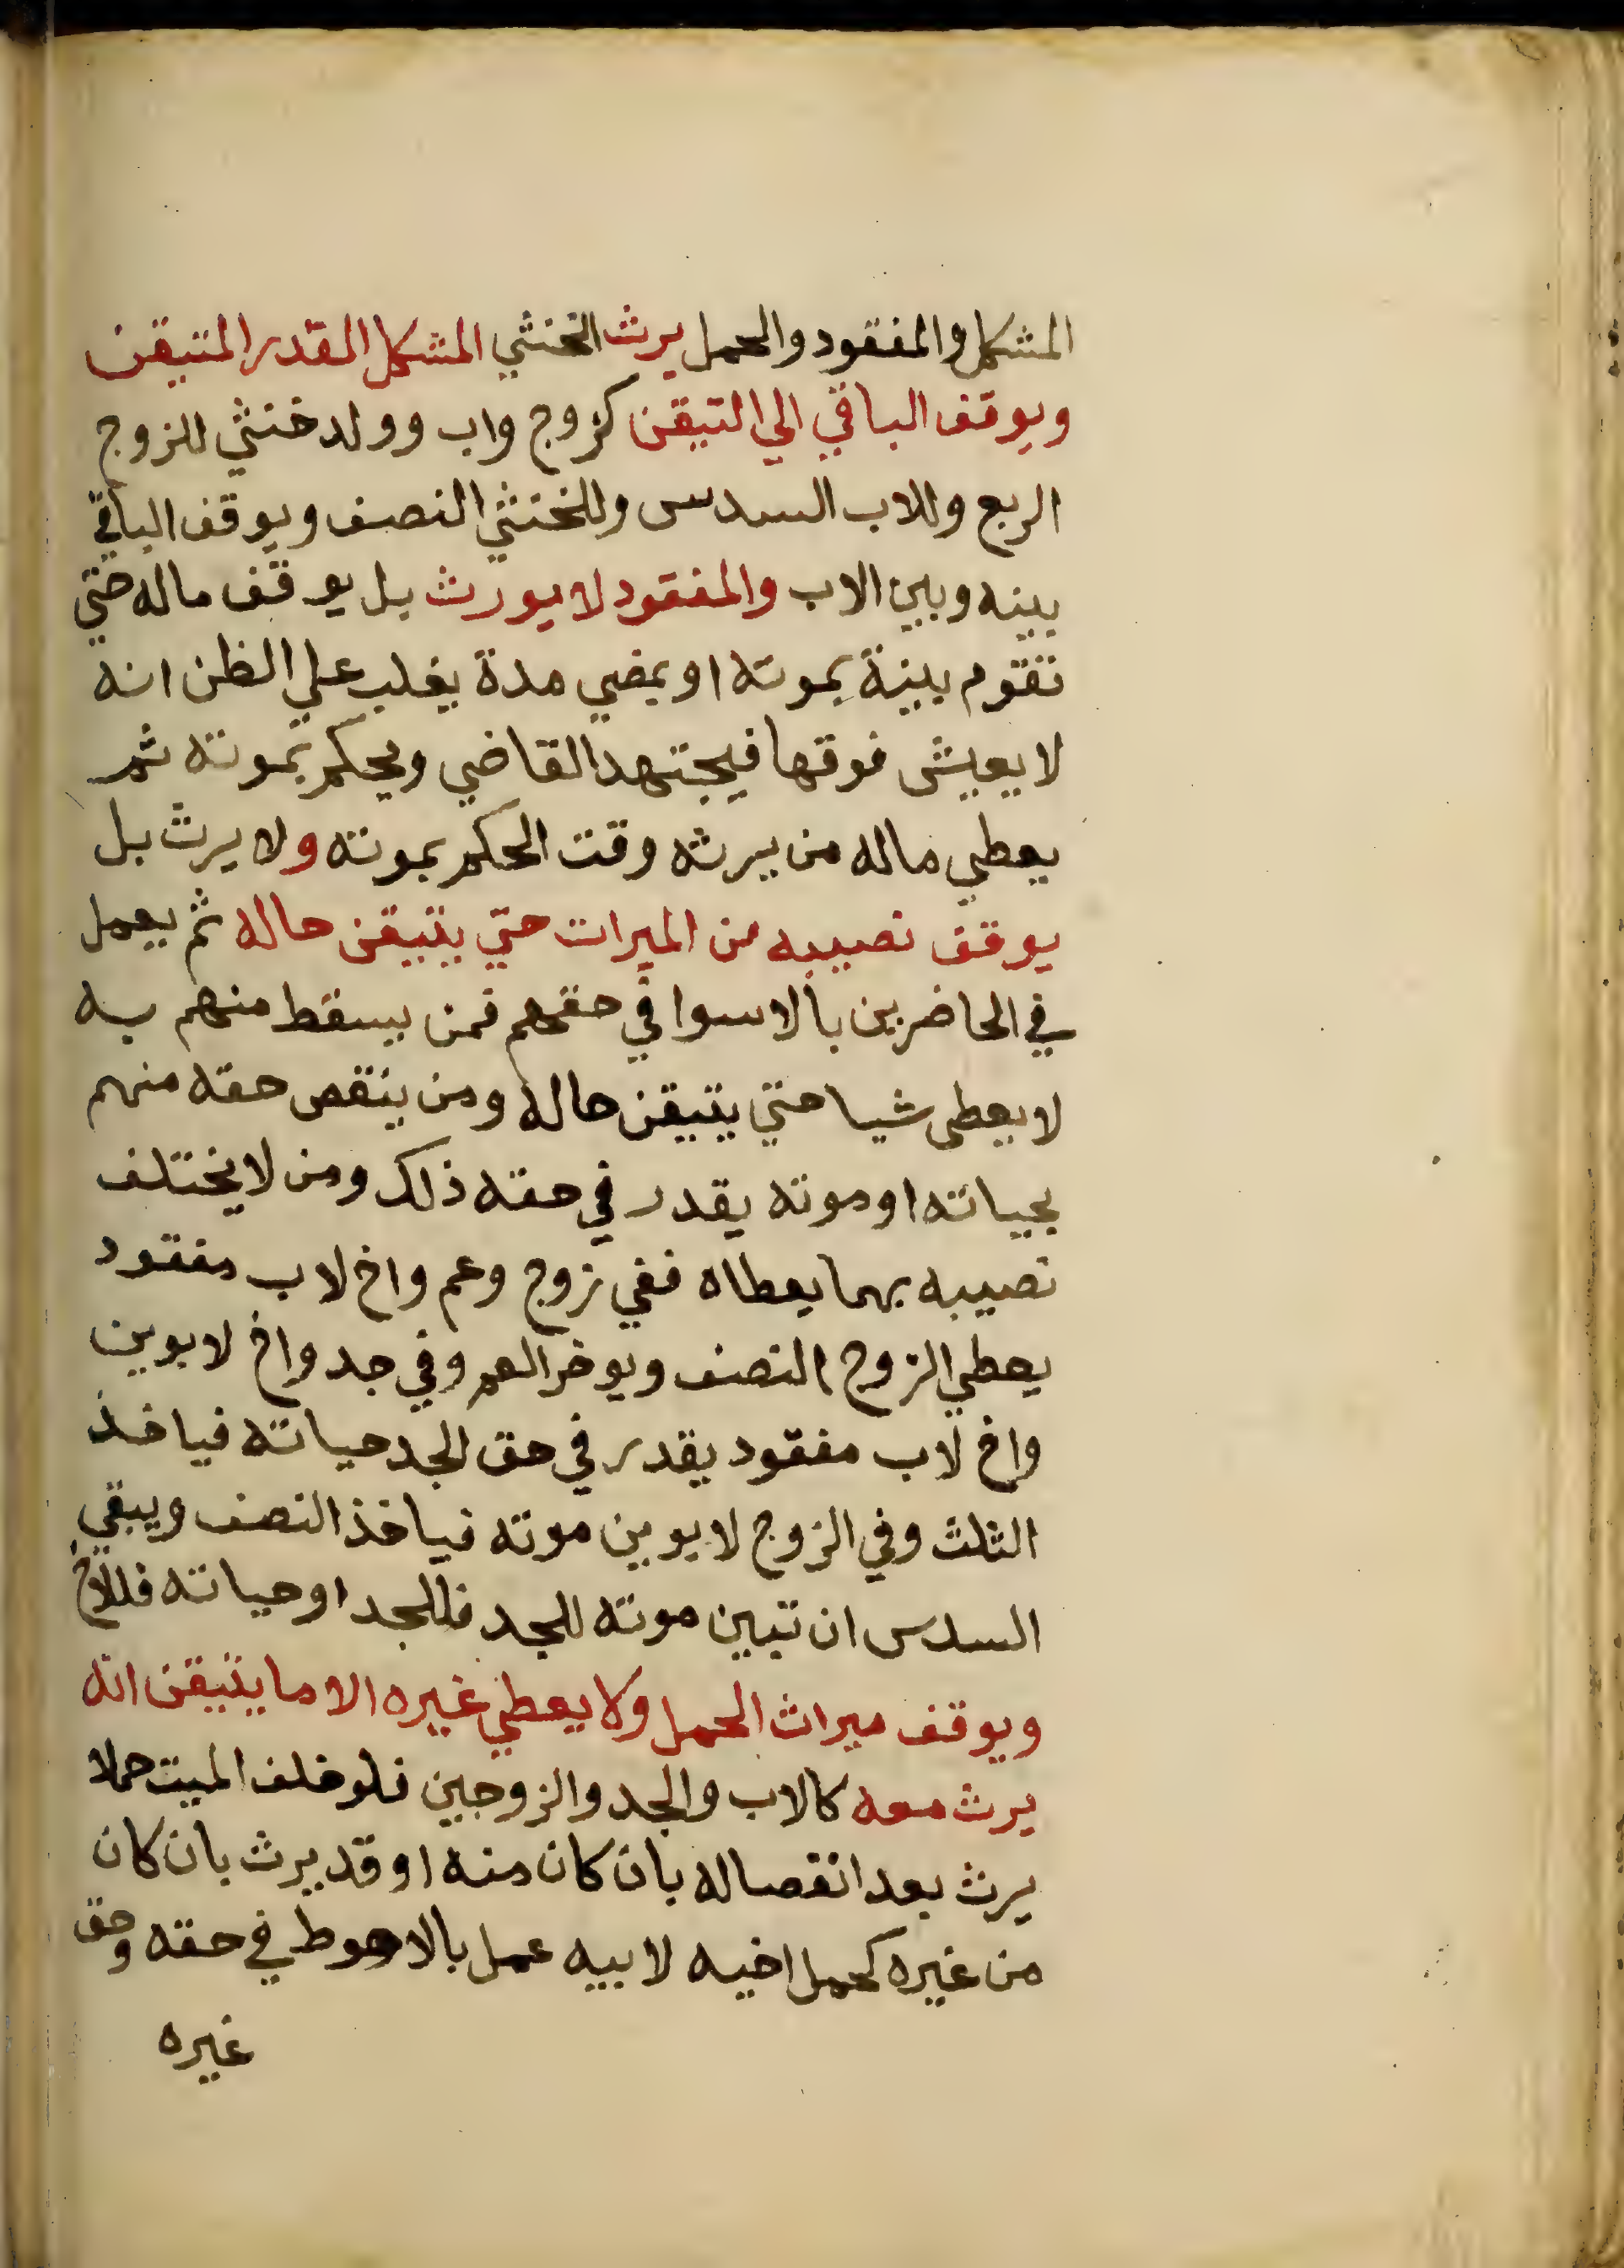 المشكل والمفقود والحمل يرث الخنثي المشكل القدر المتيقن
ويوقف الباقي الي التيقن كزوج واب وولد خنثي للزوج
الربع وللاب السدس وللخنثي النصف ويوقف الباقي
بينه وبين الاب والمفقود لا يورث بل يوقف ماله حتي
تقوم بينة بموته او يمضي مدة يغلب علي الظن انه
لا يعيش فوقها فيجتهد القاضي ويحكم بموته ثم
يعطي ماله من يرثه وقت الحكم بموته ولا يرث بل
يوقف نصيبه من الميراث حتي يتيقن حاله ثم يعمل
في الحاضرين بالاسوا في حقهم فمن يسقط منهم به
لا يعطي شيا حتي يتيقن حاله ومن ينقص حقه منهم
بحياته او موته يقدر في حقه ذلك ومن لا يختلف
نصيبه بهما يعطاه ففي زوج وعم واخ لاب مفقود
يعطي الزوج النصف ويوخر العم وفي جد واخ لابوين
واخ لاب مفقود يقدر في حق الجد حياته فياخذ
الثلث وفي الزوج لابوين موته فياخذ النصف ويبقي
السدس ان تبين موته للجد فللجد او حياته فللاخ
ويوقف ميراث الحمل ولا يعطي غيره الا ما يتيقن انه
يرث معه كالاب والجد والزوجين فلو خلف الميت حملا
يرث بعد انفصاله بان كان منه او قد يرث بان كان
من غيره كحمل اخيه لابيه عمل بالاحوط في حقه وحق
غيره